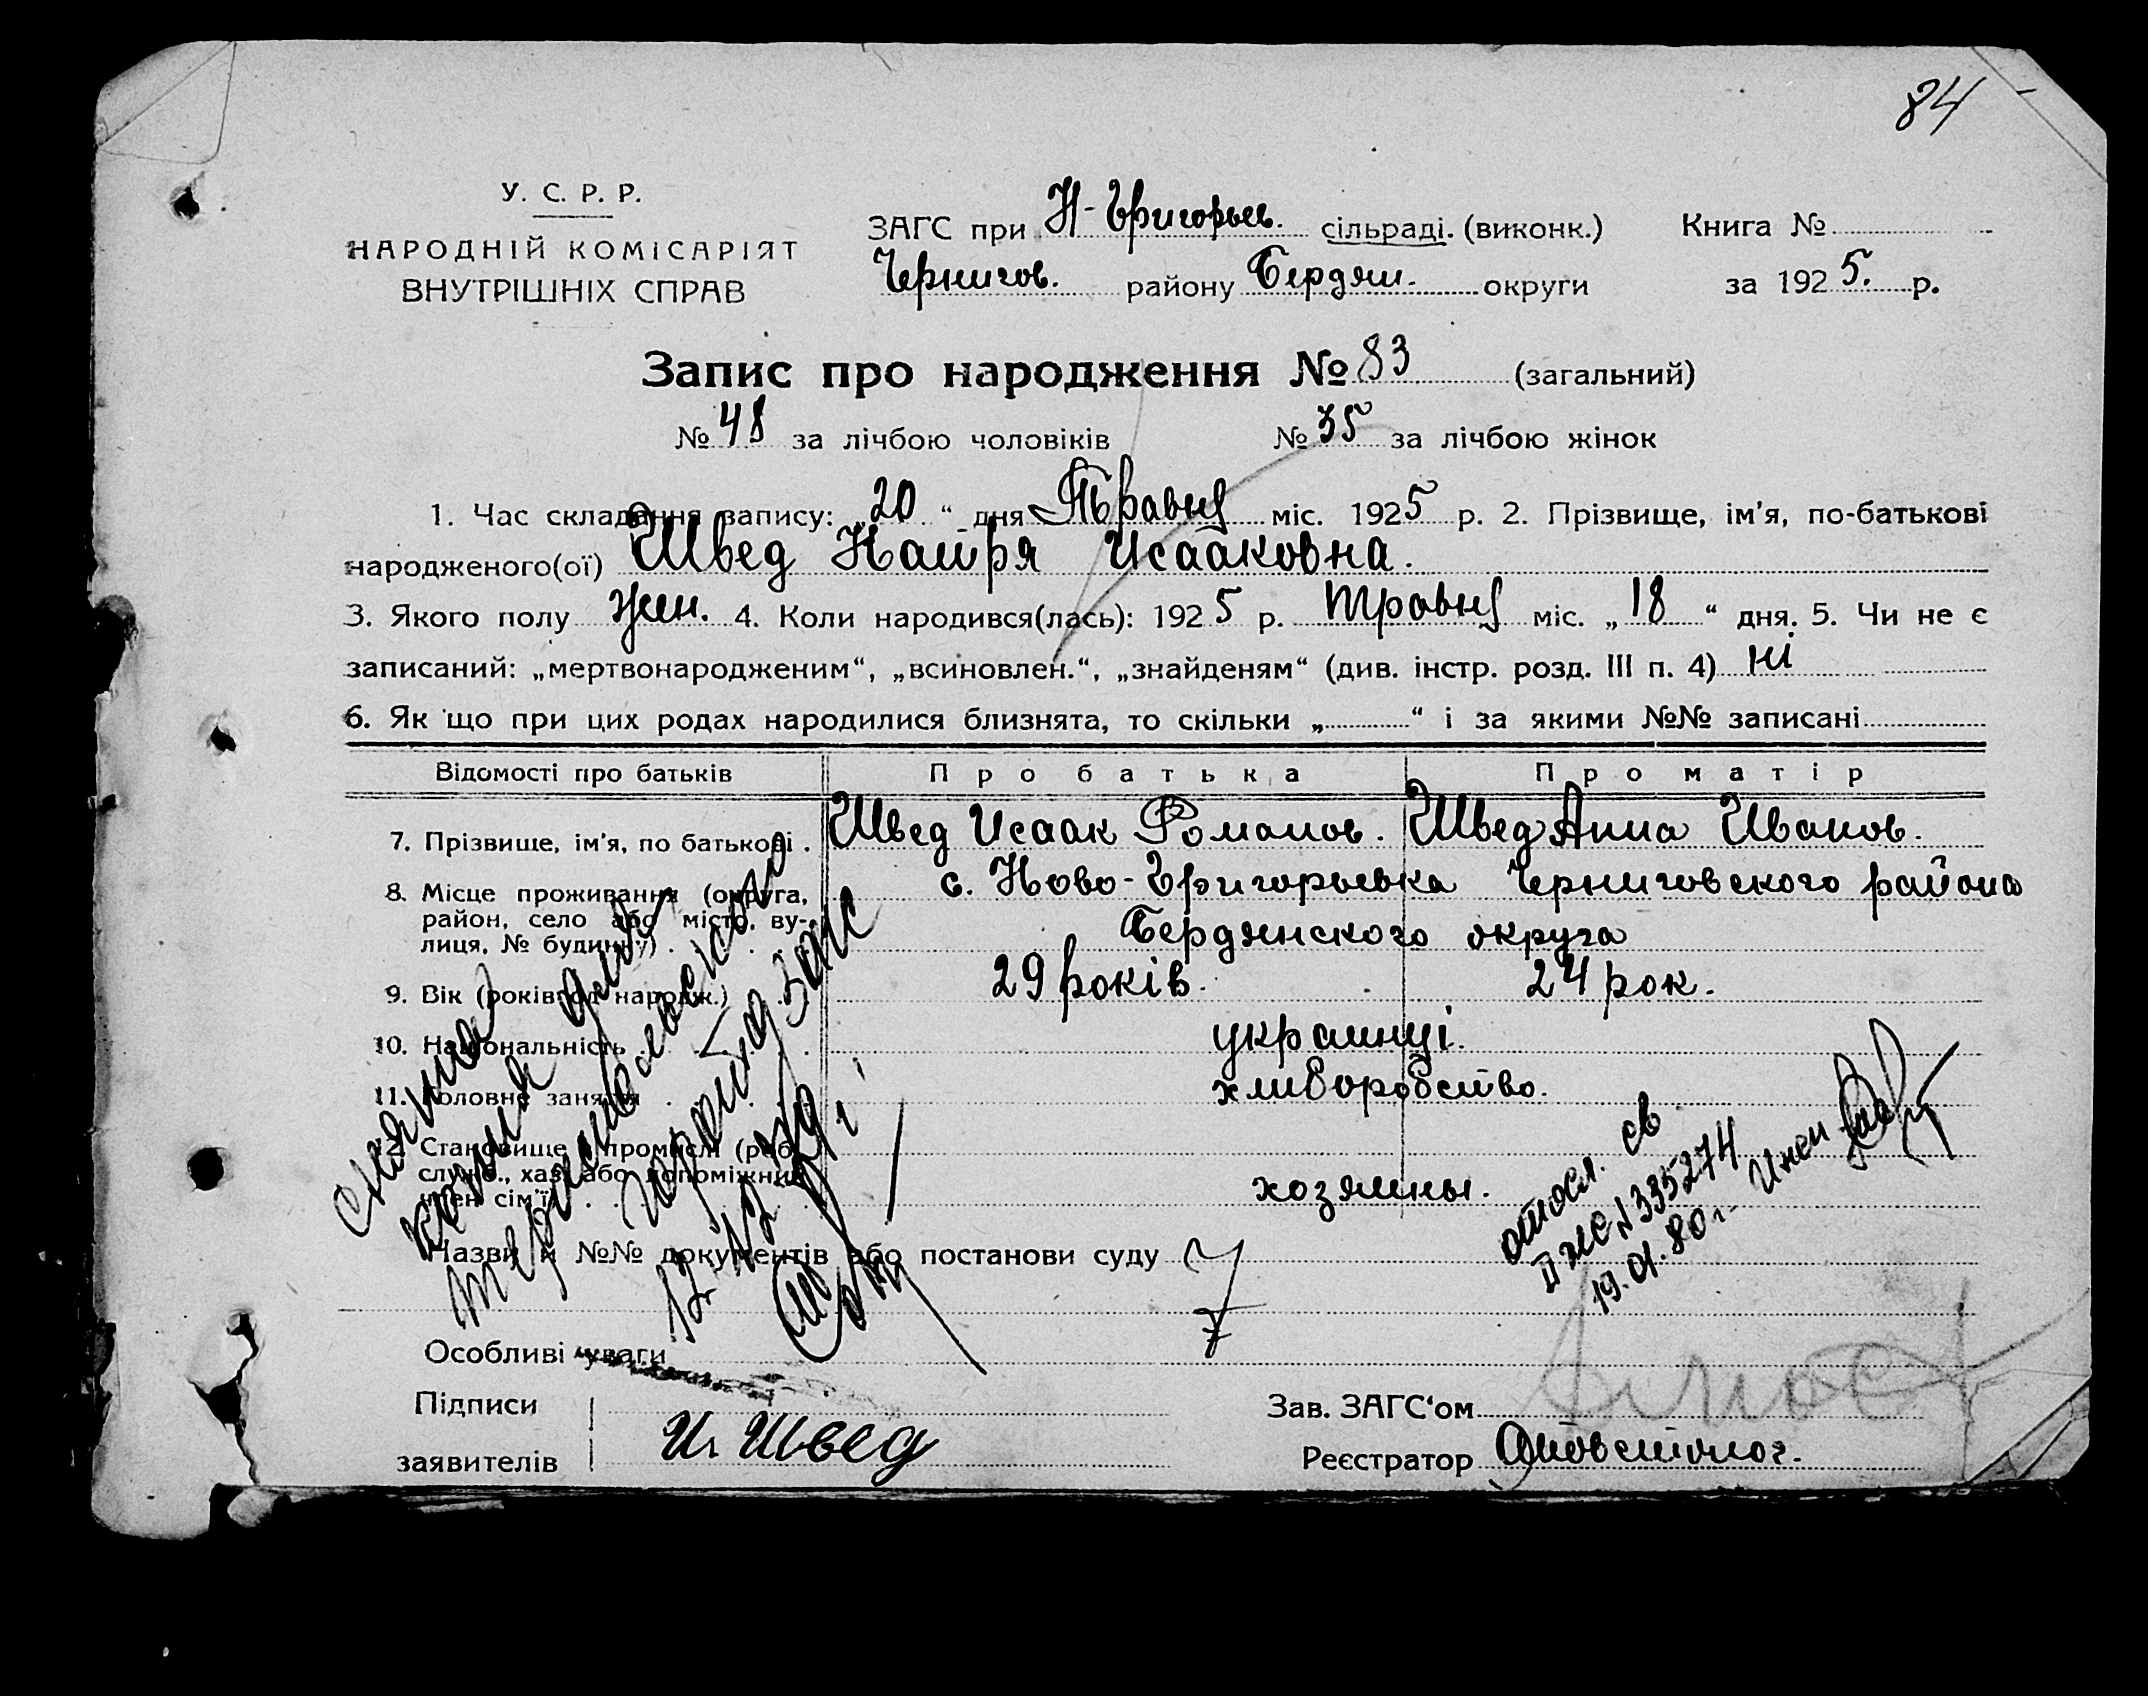 84
У. С. Р. Р.
НАРОДНІЙ КОМІСАРІЯТ
ВНУТРІШНІХ СПРАВ
ЗАГС при Н-Григорьев. сільраді. (виконк.) Книга №
Чернигов. району Бердян. округи за 1925. р.
Запис про народження № 83 (загальний)
№ 48 за лічбою чоловіків № 35 за лічбою жінок
1. Час складання запису: „20“ дня Травня міс. 1925 р. 2. Прізвище, ім'я, по-батькові
народженого(ої) Швед Исааковна.
3. Якого полу жен. 4. Коли народився(лась): 1925 р. травня міс. „18“ дня. 5. Чи не є
записаний: „мертвонародженим“, „всиновлен.“, „знайденям“ (див. інстр. розд. III п. 4) ні
6. Як що при цих родах народилися близнята, то скільки „ “ і за якими №№ записані
Відомості про батьків Про батька Про матір
7. Прізвище, ім'я, по батькові . Швед Исаак Романов. Швед Анна Иванов.
8. Місце проживання (округа, район, село або місто, вулиця, № будинку) . с. Ново-Григорьевка Черниговского района
Бердянского округа
9. Вік (років від народж.) 29 років. 24 рок.
10. Національність украинці.
11. Головне заняття хлиборобство.
12. Становище в промислі (роб., служб., хаз. або допоміжний член сім'ї) хозяины.
Назви й №№ документів або постанови суду
Особливі уваги
Підписи
заявителів И. Швед
Зав. ЗАГС'ом
Реєстратор
Снята
копия для
12
св
№ 335274
19.01.80 г.